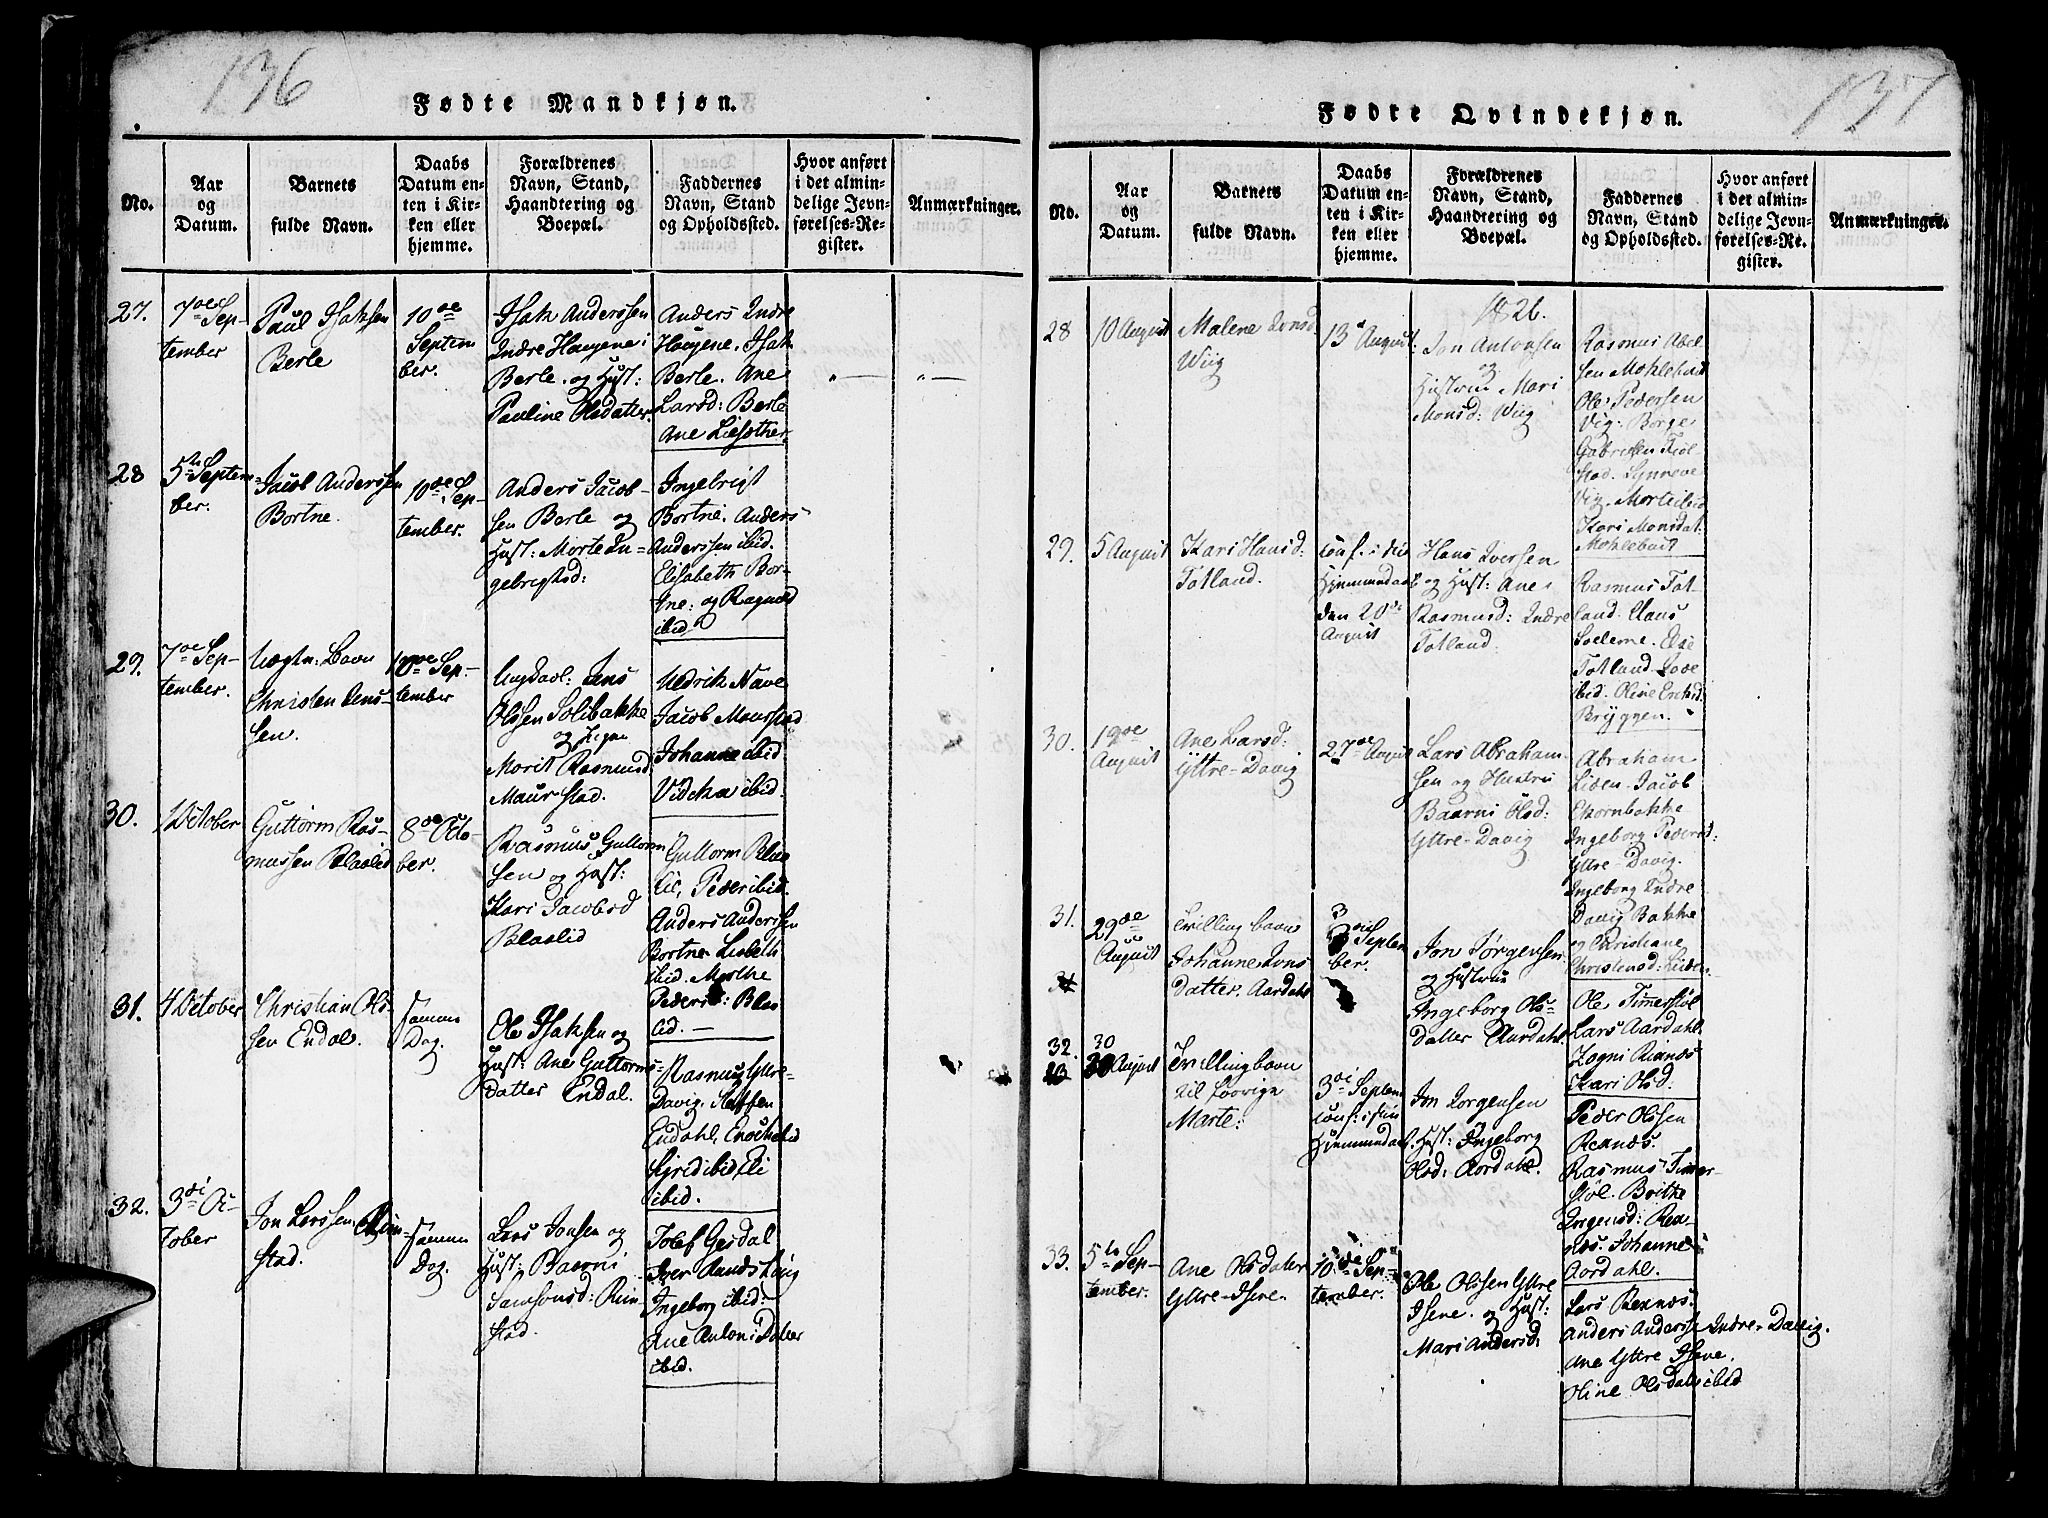 136
Fødte Mandkjøn.
No.
Aar
og
Datum.
Barnets
fulde Navn.
Daabs
Datum en-
ten i Kir-
ken eller
hjemme.
Forældrenes
Navn, Stand,
Haandtering og
Boepæl.
Faddernes
Navn, Stand
og Opholdssted.
Hvor anført
i det almin-
delige Jevn-
førelses-Re-
gister.
Anmærkninger.
27.
7de Sep-
tember
Paul Isaksen
Berle
10de
Septem
ber.
Isak Anderssen
Indre Haugene i
Berle. og Hust:
Pauline Olsdatter
Anders Indre
Haugene. Isak
Berle. Ane
Larsd: Berle
Ane Liesæther.
28
5te Septem-
ber.
Jacob Anderssen
Bortne.
10de Sep-
tember.
Anders Jacob-
sen Berle og
Hust: Morte In-
gebrigtsd:
Ingebrigt
Bortne. Anders
Anderssen ibid.
Elisabeth Bor-
tne: og Ragnild
ibid
29.
7de Sep-
tember.
Uægte: Barn
Christen Jens-
sen.
10de Sep-
tember
Ungdarl: Jens
Olssen Solibakke
og Pigen
Morit Rasmusd
Maurstad.
Hedrik Nave
Jacob Maurstad
Johanne ibid
Vidcka ibid.
30.
1 October
Guttorm Ras-
mussen Blaalid
8de Octo-
ber.
Rasmus Guttorm
sen og Hust:
Kari Jacobsd
Blaalid
Guttorm Blaa
lid, Peder ibid.
Anders Anderssen
Bortne. Lisbeth
ibid. Marthe
Pedersd: Blaa
lid.
31.
4 October
Christian Ols-
sen Endal.
samme
Dag.
Ole Isaksen og
Hust: Ane Guttorms-
datter Endal.
Rasmus Yttre-
Davig. Steffen
Endahl, Enoch ibid
Sigrid ibid Eli
ibid.
32.
3die Oc-
tober
Jon Larssen Rim-
stad.
samme
Dag.
Lars Jonsen og
Hust: Baarni
Samsonsd: Rim-
stad.
Tolef Gesdal
Iver Randshaug
Ingeborg ibid:
Ane Antoni Datter
ibid.
137
Fødte Qvindekjøn.
No.
Aar
og
Datum.
Barnets
fulde Navn.
Daabs
Datum en-
ten i Kir-
ken eller
hjemme.
Forældrenes
Navn, Stand,
Haandtering og
Boepæl.
Faddernes
Navn, Stand
og Opholdssted.
Hvor anført
i det almin-
delige Jevn-
førelses-Re-
gister.
Anmærkninger.
1826.
28
10 August
Malene Jonsd
Wiig
13d August:
Jon Antonsen
og
Hustrue Mari
Monsd: Wiig
Rasmus Abel
sen Mohlebust
Ole Pedersen
Vig. Borge
Gabrielsen Fiøl
stad. Synneve
Vig. Morte ibid
Kari Monsdat.
Mohlebust
29.
5 August
Kari Hansd:
Totland.
conf: i sin
Hjemmedaab
den 20de
August
Hans Iversen
og Hust: Ane
Rasmusd: Indre
Totland.
Rasmus Tot-
land. Claus
Sælerne. Else
Totland. Love
ibid. Oline Ericksd
Bryggen.
30.
19de
August
Ane Larsd:
Yttre-Davig
27de August
Lars Abraham-
sen og Hustru
Baarni Olsd:
Yttre-Davig
Abraham
Liden. Jacob
Ekornbakke
Ingeborg Pedersd:
Yttre-Davig.
Ingeborg Indre
Davig Bakke
og Christiane
Christensd: Liden.
31.
29de
August
Tvilling barn
Johanne Jons
datter. Aardahl
3
Septem
ber.
Jon Jørgensen
og Hustrue
Ingeborg Ols-
datter Aardahl
Ole Timerstøl
Lars Aardahl.
Zogni Rixnæs
Kari Olsd.
32.
30
August
Tvillingbarn
til forrige
Marte:
3die Septem
conf: i sin
Hjemmedaab
Jon Jorgensen
Hust: Ingeborg
Olsd: Aordahl.
Peder Olssen
Rexnæs.
Rasmus Timer-
støl. Brithe
Jorgensd: Rex-
næs. Johanne
Aordahl.
33.
5te Sep-
tember.
Ane Olsdatter
Yttre-Isene.
10de Sep-
tember.
Ole Olssen Yttre
Isene. og Hust:
Mari Andersd:
Lars Rexnæs.
Anders Anderss Indre-Davig.
Ane Yttre Isene.
Oline Olsdatt ibid